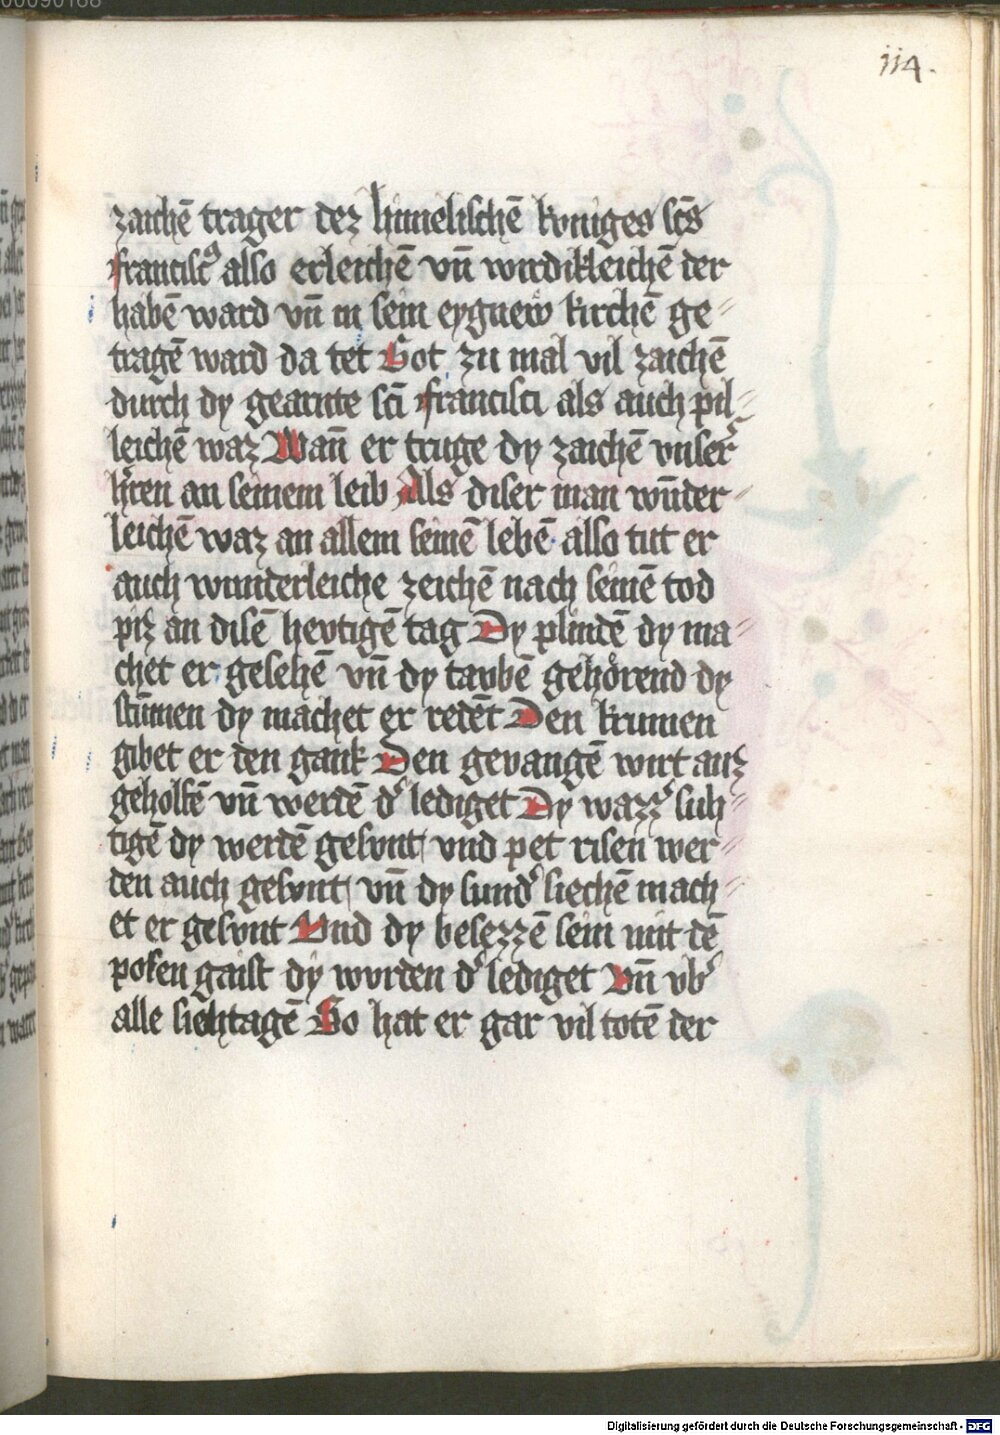 114.
zaichē trager dez himelischē koniges sc̄s
francisc⁹ also erleichē vn̄ wirdikleichē der
habē ward vn̄ in sein eygnew kirchē ge⸗
tragē ward da tet Got zu mal vil zaichē
durch dy gearnte sc̄i francisci als auch pil⸗
leichē waz Wan̄ er truge dy zaichē vnser̄
h̄ren an seinem leib Als diser man wūder⸗
leichē waz an allem seinē lebē also tut er
auch wunderleiche zeichē nach seinē tod
piz an disē hevtigē tag Dy plindē dy ma⸗
chet er gesehē vn̄ dy taubē gehörend dy
stūmen dy machet er redēt Den krumen
gibet er den gank Den gevangē wirt auz
geholfē vn̄ werdē d͛ lediget Dy wazz͛ suh⸗
tigē dy werdē gesvnt vnd pet risen wer⸗
den auch gesvnt vn̄ dy sund͛ siechē mach⸗
et er gesvnt Vnd dy besezzē sein mit dē
posen gaist dy wvrden d͛ lediget Vn̄ vb͛
alle siehtagē So hat er gar vil totē der
Digitalisierung gefördert durch die Deutsche Forschungsgemeinschaft - DFG